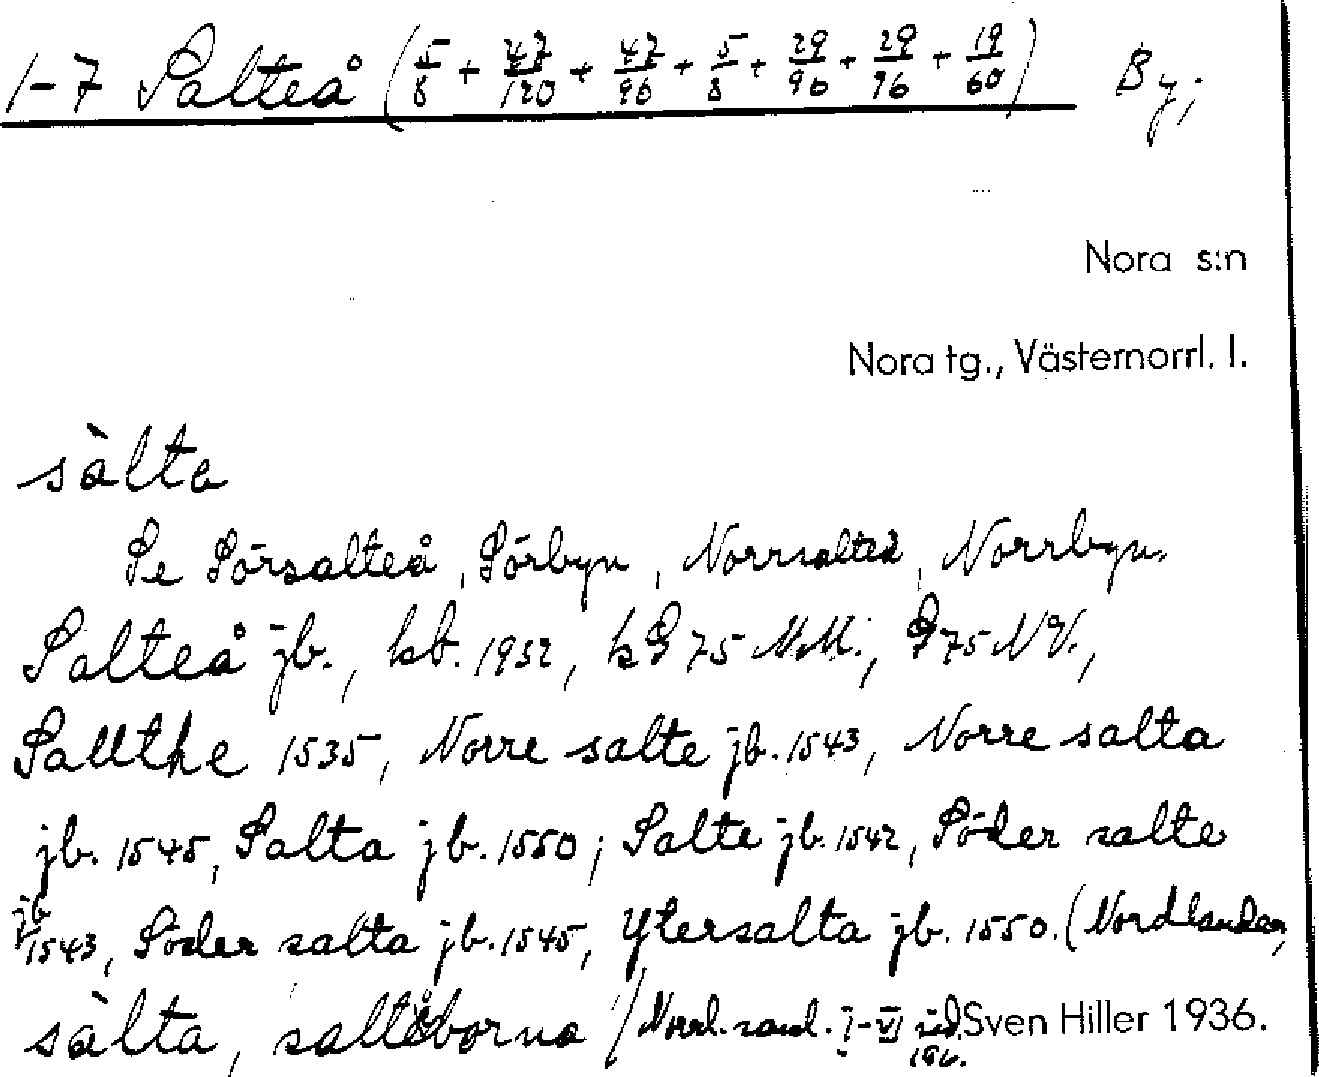 1-7 Salteå (5/8 + 47/120 + 47/96 + 5/8 + 29/96 + 29/96 + 19/60) By;
Nora s:n
Nora tg., Västernorrl. l.
sàlta
Se Sörsalteå, Sörbyn, Norrsalteå, Norrbyn.
Salteå jb., kb. 1932, 75 75 NV.,
Sallthe 1535, Norre salte jb. 1543, Norre salta
jb. 1545, Salta jb. 1550; Salte jb. 1542, Söder salte
jb 1543, Söder salta jb. 1545, Ytersalta jb. 1550. (Nordlander,
sàlta, saltåborna / Norrl. saml. I-VI sid. 196.
Sven Hiller 1936.